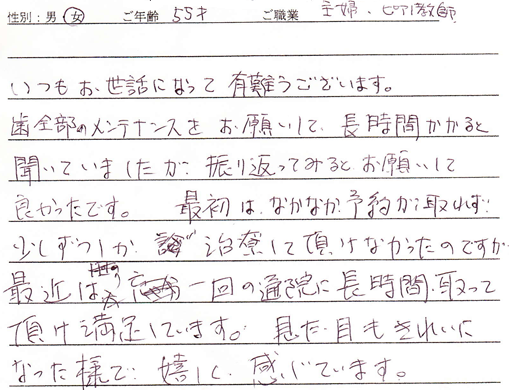 性別：男 女 ご年齢 55才 ご職業 主婦・ピアノ教師
いつもお世話になって有難うございます。
歯全部のメンテナンスをお願いして、長時間かかると
聞いていましたが、振り返ってみるとお願いして
良かったです。 最初は、なかなか予約が取れず、
少しずつしか 治療して頂けなかったのですが
最近は、 一回の通院に長時間取って
頂け満足しています。見た目もきれいに
なった様で嬉しく感じています。